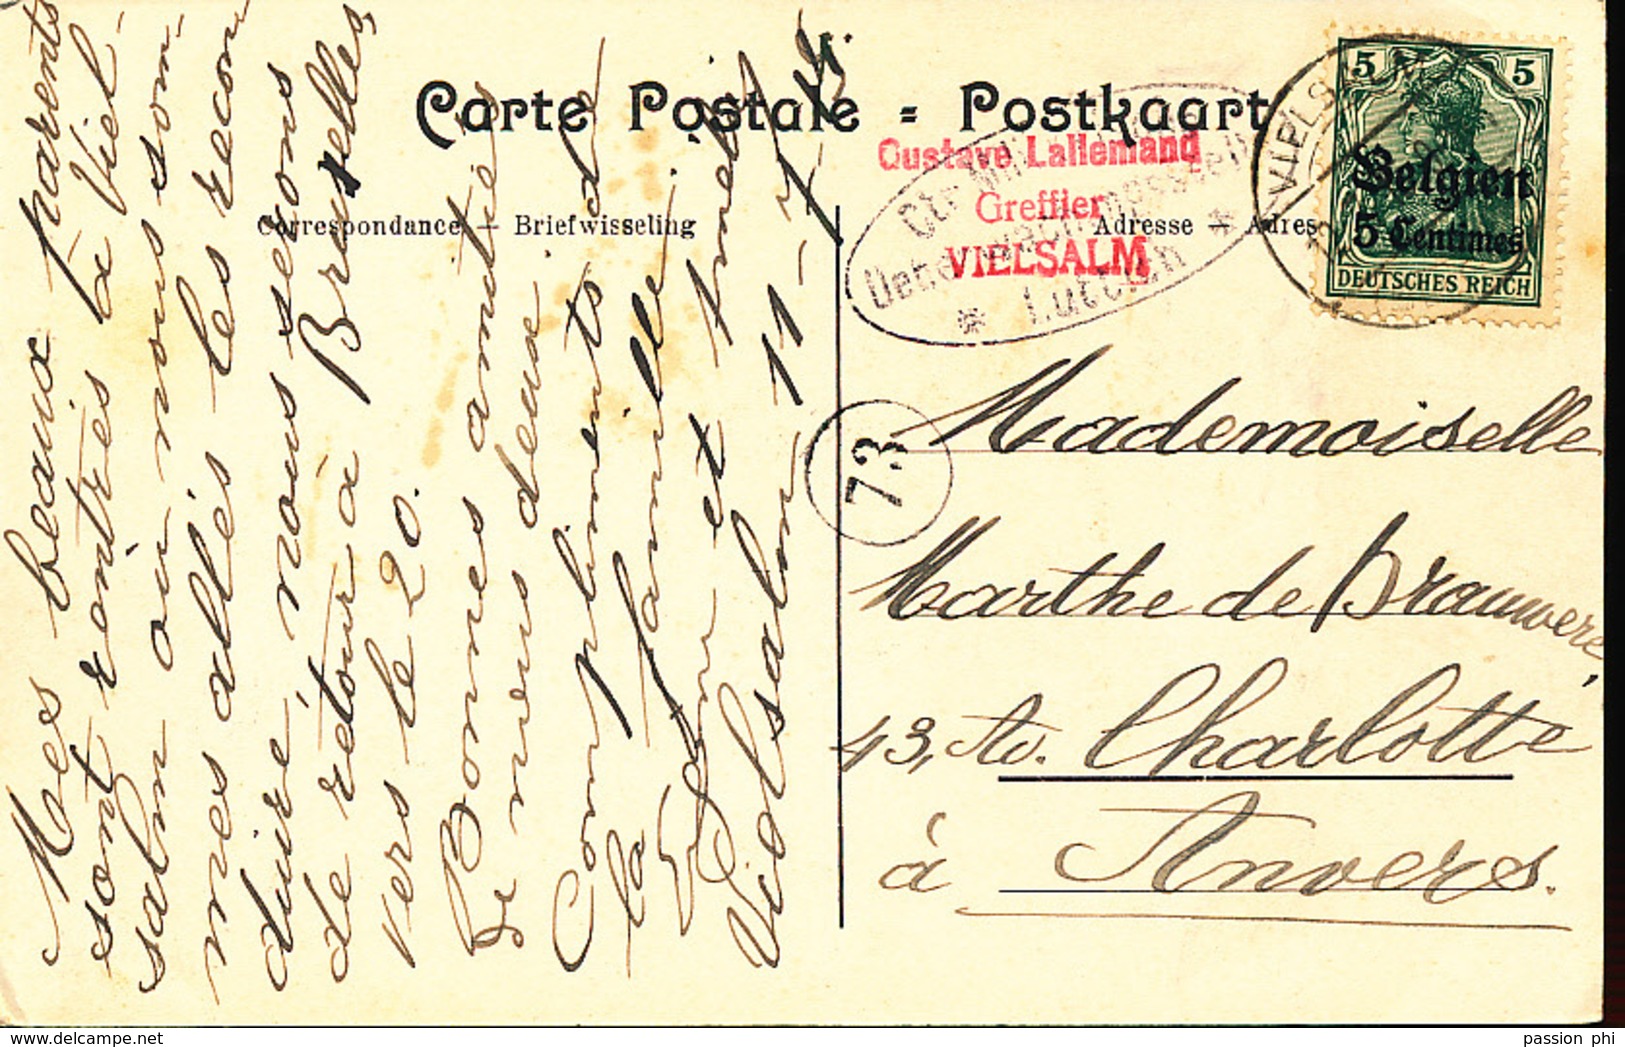 Carte Postale = Postkaart
Correspondance — Briefwisseling
Adresse * Adres
Gustave Lallemand
Greffier
VIELSALM
* Lüttich *
VIELSALM
5 5
Belgien
5 Centimes
DEUTSCHES REICH
73
Mes beaux parents
sont rentrés à Viel-
salm où nous som-
mes allés les recon
duire, nous serons
de retour à Bruxelles
vers le 20.
Bonnes amitiés
de nous deux.
Compliments de
la famille
et
Vielsalm 11-7-
Mademoiselle
Marthe de
43, Av. Charlotte
à Anvers.
passion phi